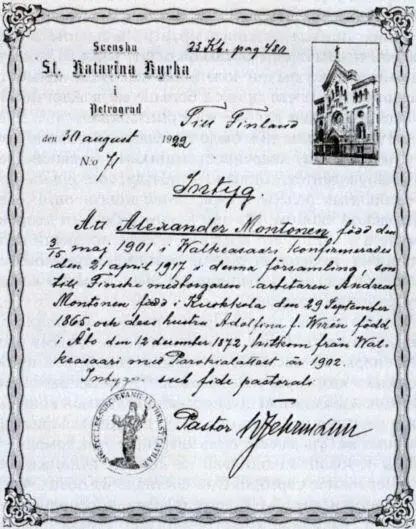 Svenska
St. Katarina Kyrka
i
Petrograd
22 Kb. pag 480
Till Finland
den 30 august 1922
No 71
Intyg
Att Alexander Montonen född den
3/15 maj 1901 i Walkeasaari konfirmerad
den 21 april 1917 i denna församling, son
till Finske medborgaren arbetaren Andreas
Montonen född i Kurkkola den 29 September
1865 och dess hustru Adolfina f. Wirén född
i Åbo den 12 december 1872, hitkom från Wal-
keasaari med Parokialattest år 1902.
Intygar sub fide pastorali
Pastor